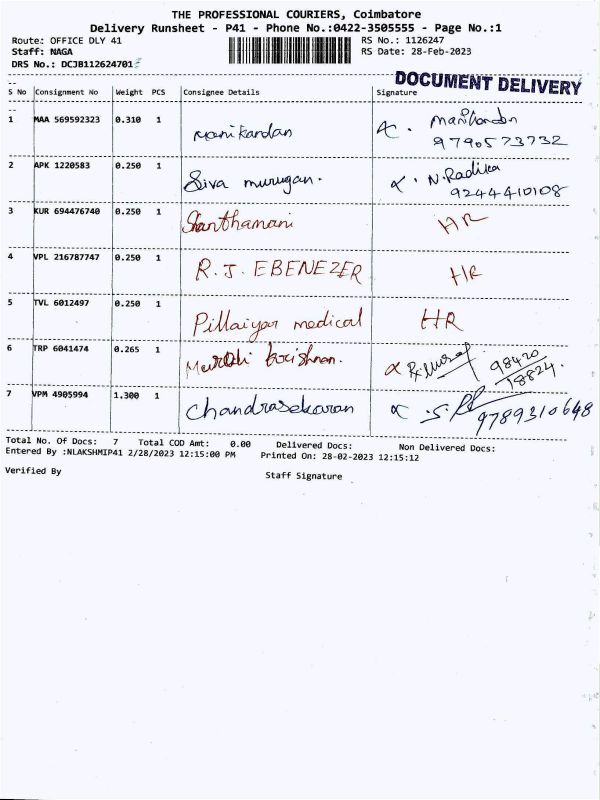 THE PROFESSIONAL COURIERS, Coimbatore
Delivery Runsheet - P41 - Phone No.:0422-3505555 - Page No.:1
Route: OFFICE DLY 41 RS No.: 1126247
Staff: NAGA RS Date: 28-Feb-2023
DRS No.: DCJB112624701
DOCUMENT DELIVERY
S No Consignment No Weight PCS Consignee Details Signature
1 MAA 569592323 0.310 1 Manikandan Manikandan
9790573732
2 APK 1220583 0.250 1 Siva murugan. N.Radika
9244410108
3 KUR 694476740 0.250 1 Shanthamani HR
4 VPL 216787747 0.250 1 R.J. EBENEZER HR
5 TVL 6012497 0.250 1 Pillaiyar medical HR
6 TRP 6041474 0.265 1 krishnan. 98420
18824.
7 VPM 4905994 1.300 1 Chandrasekaran 9789310648
Total No. Of Docs: 7 Total COD Amt: 0.00 Delivered Docs: Non Delivered Docs:
Entered By :NLAKSHMIP41 2/28/2023 12:15:00 PM Printed On: 28-02-2023 12:15:12
Verified By Staff Signature